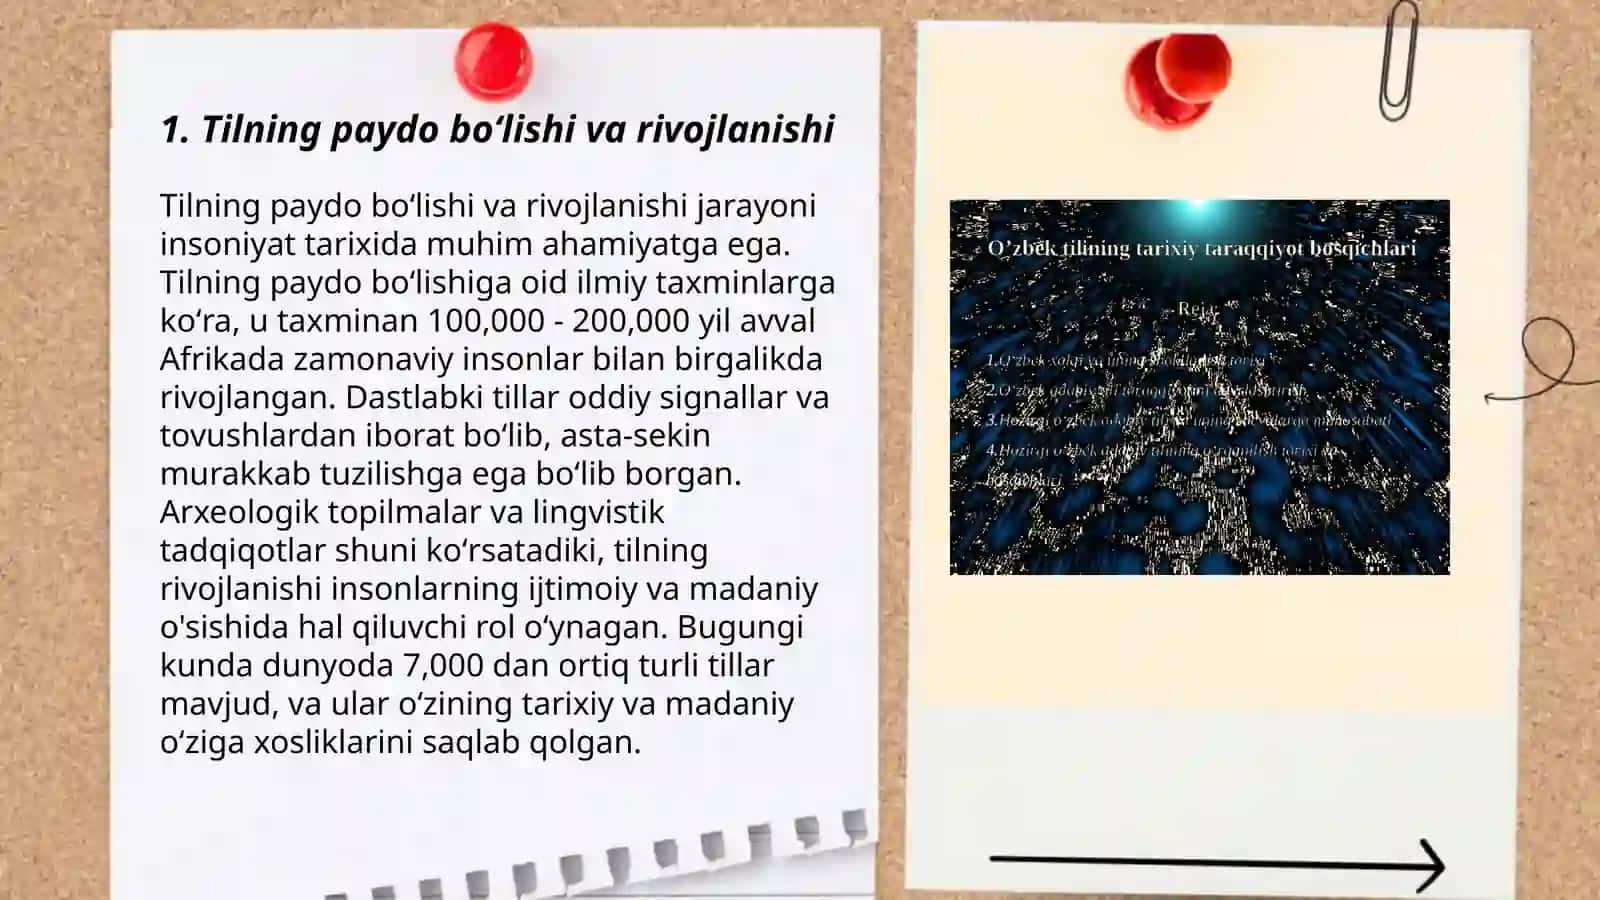 1. Tilning paydo bo‘lishi va rivojlanishi
Tilning paydo bo‘lishi va rivojlanishi jarayoni
insoniyat tarixida muhim ahamiyatga ega.
Tilning paydo bo‘lishiga oid ilmiy taxminlarga
ko‘ra, u taxminan 100,000 - 200,000 yil avval
Afrikada zamonaviy insonlar bilan birgalikda
rivojlangan. Dastlabki tillar oddiy signallar va
tovushlardan iborat bo‘lib, asta-sekin
murakkab tuzilishga ega bo‘lib borgan.
Arxeologik topilmalar va lingvistik
tadqiqotlar shuni ko‘rsatadiki, tilning
rivojlanishi insonlarning ijtimoiy va madaniy
o'sishida hal qiluvchi rol o‘ynagan. Bugungi
kunda dunyoda 7,000 dan ortiq turli tillar
mavjud, va ular o‘zining tarixiy va madaniy
o‘ziga xosliklarini saqlab qolgan.
O’zbek tilining tarixiy taraqqiyot bosqichlari
1.O‘zbek xalqi va uning tarixi
2.O‘zbek adabiy
3.Hozirgi o‘zbek adabiy
4.Hozirgi o‘zbek adabiy tilining o‘rganilish tarixi va